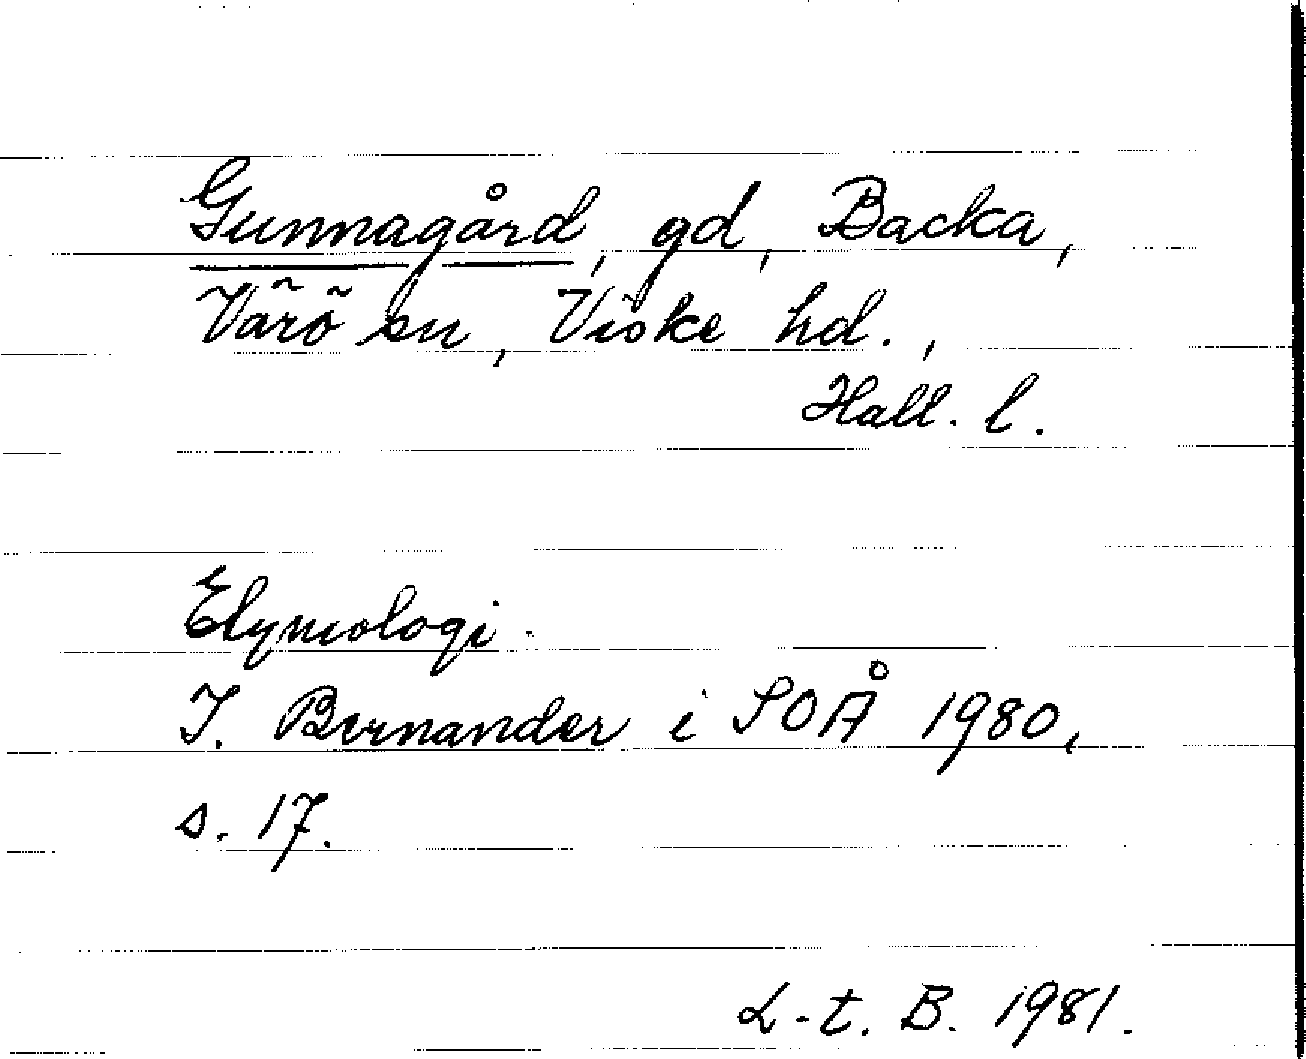 Gunnagård, gd, Backa,
Värö sn, Viske hd.,
Hall. l.
Etymologi.
I. Bernander i SOÅ 1980,
s. 17.
L-t. B. 1981.